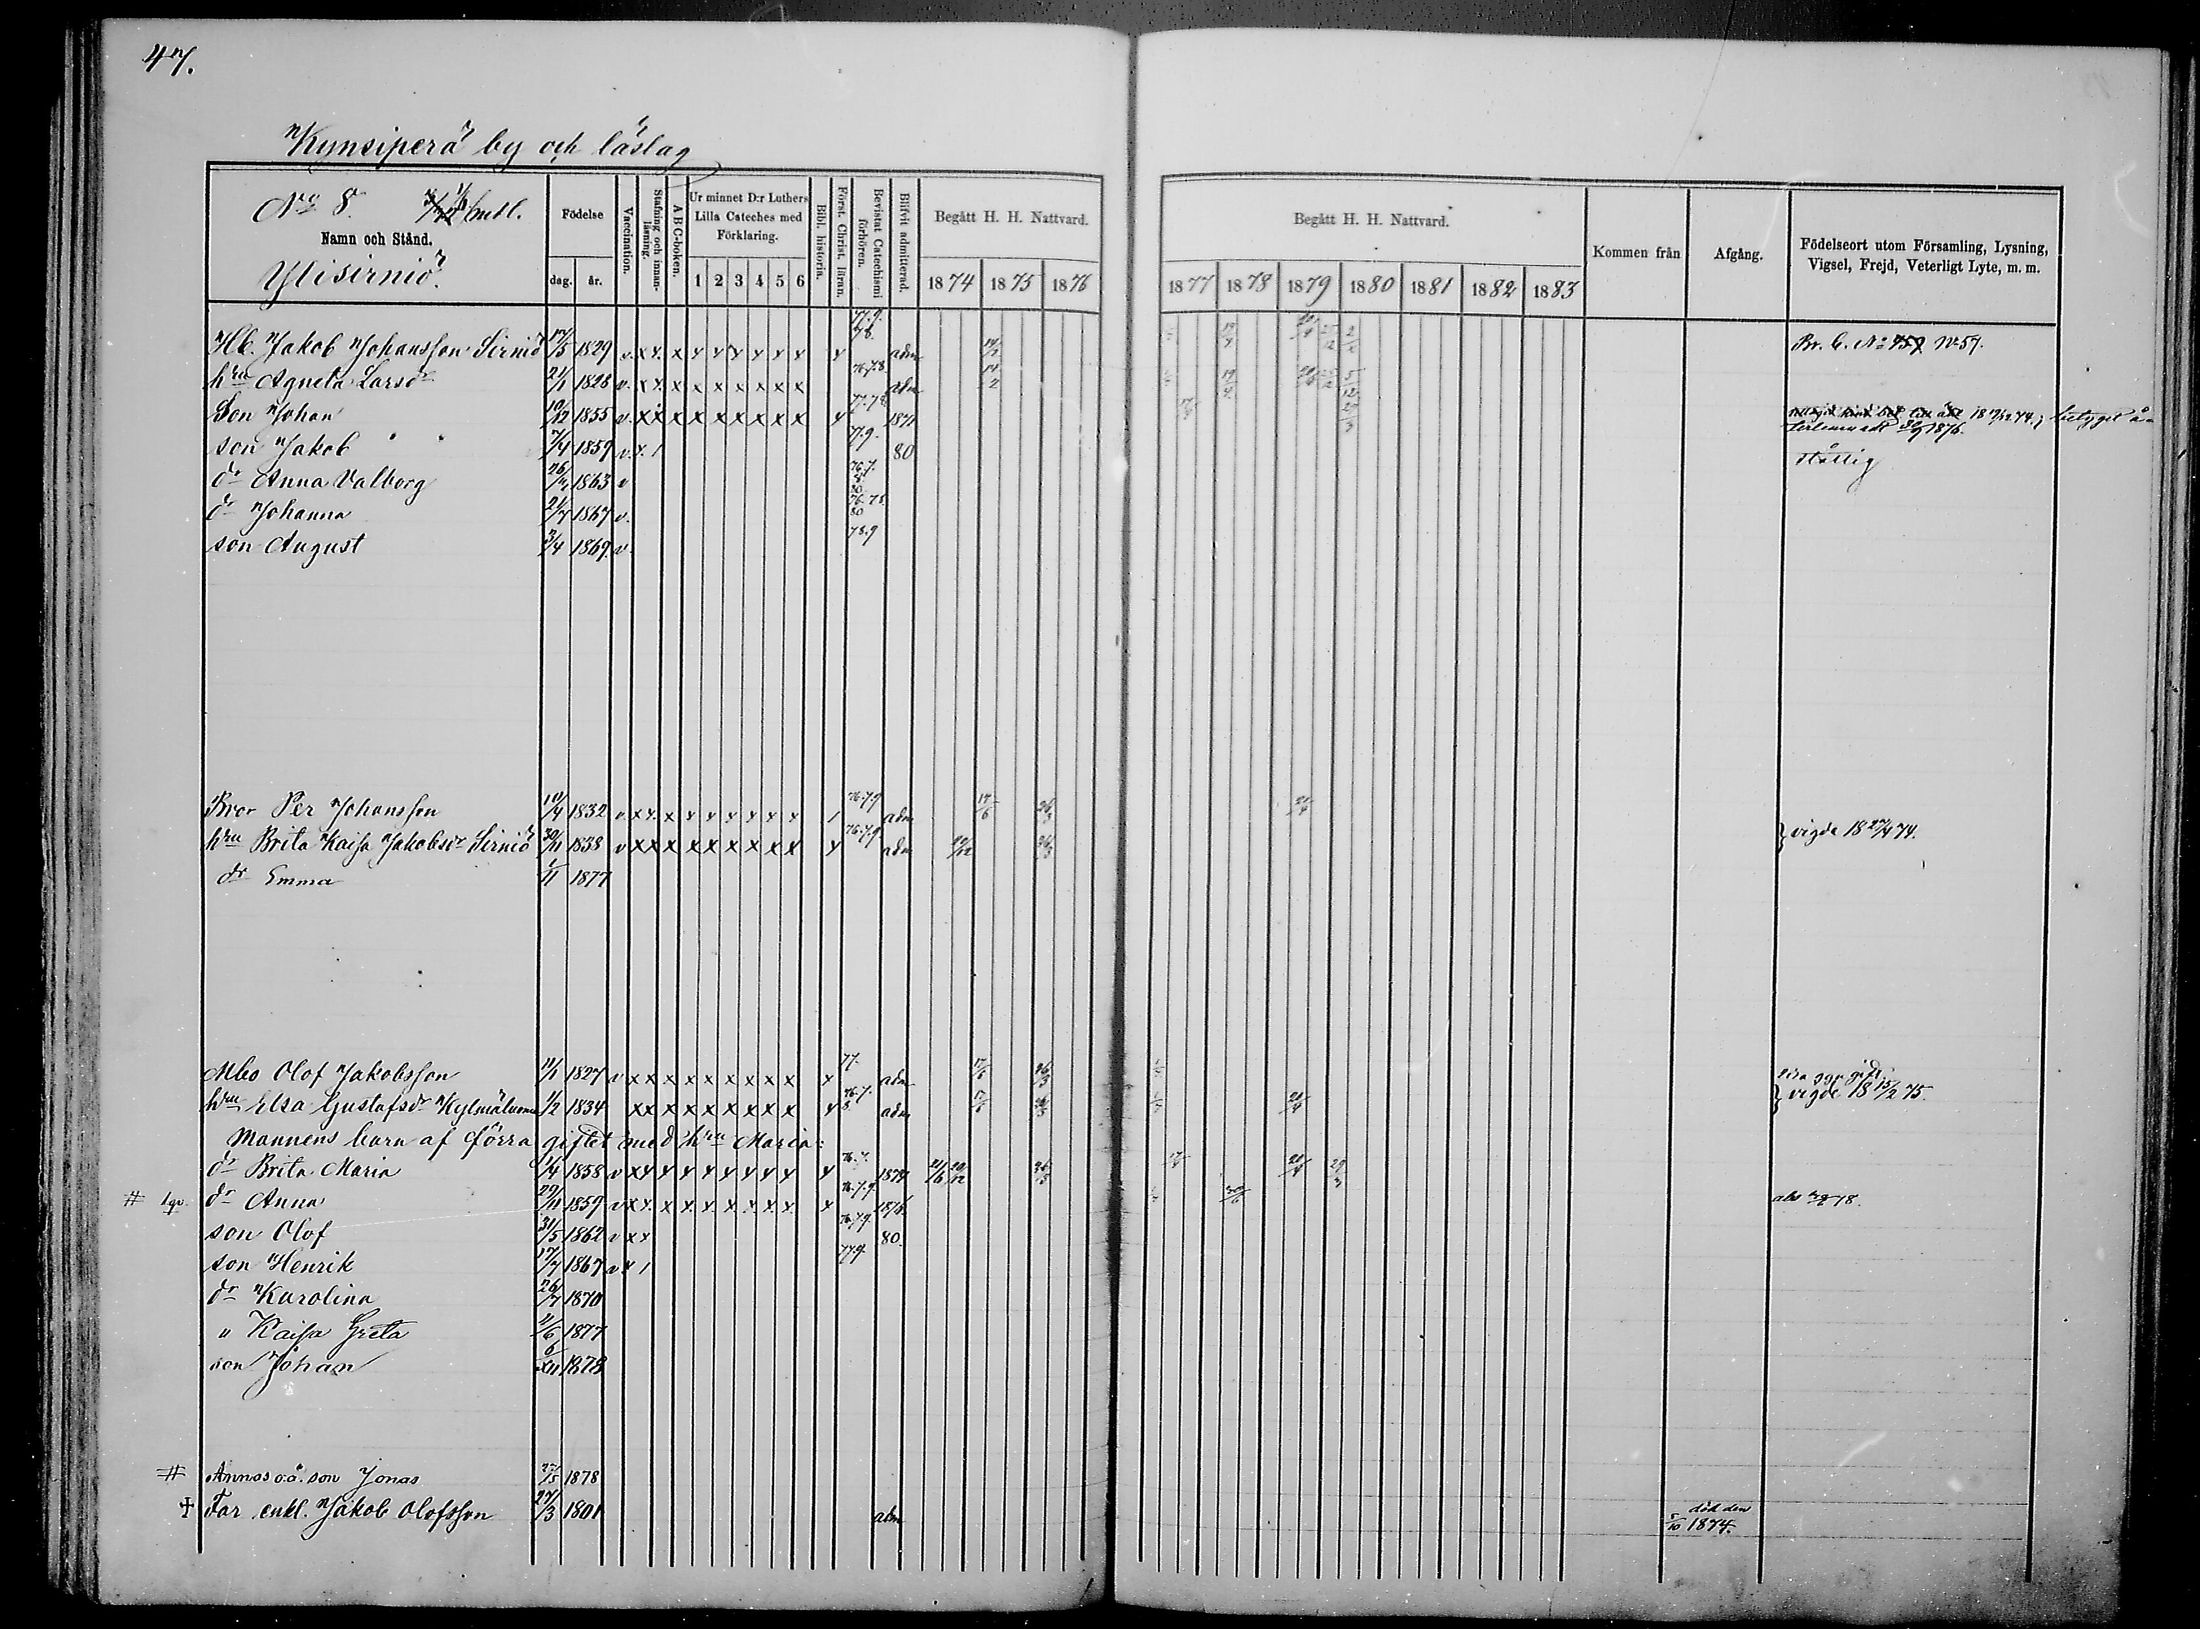 47.
Kynsiperä by och läslag
No 8. mtl.
Namn och Stånd.
Ylisirniö.
Födelse
dag. år.
Vaccination.
Stafning och innanläsning.
A B C-boken.
Ur minnet D:r Luthers Lilla Cateches med Förklaring.
1 2 3 4 5 6
Bibl. historia.
Först. Christ. läran.
Bevistat Catechismi förhören.
Blifvit admitterad.
Begått H. H. Nattvard.
1874 1875 1876
Begått H. H. Nattvard.
1877 1878 1879 1880 1881 1882 1883
Kommen från
Afgång.
Födelseort utom Församling, Lysning, Vigsel, Frejd, Veterligt Lyte, m. m.
Hb. Jakob Johansson Sirniö 17/5 1829 v. x x. x x x x x x x x adm 14/2 Br. b. No 57.
hru Agneta Larsdr 21/1 1828 v. x x. x x x x x x x 76.7.8 adm 14/2 19/4
Son Johan 10/12 1855 v. x x x x x x x x x x 1871
son Jakob 7/4 1859 v. x. 1 77.9. 80
dr Anna Valborg 26/2 1863 v 76.7.
dr Johanna 21/7 1867 v. 76.78. 80
son August 3/4 1869. v. 78.9
Bror Per Johansson 10/4 1832 v x x. x x x x x x x 1 76.7.9 adm 26/3
hru Brita Kaisa Jakobsdr Sirniö 30/11 1838 v x x x x x x x x x x 76.7.9 adm 20/12 26/3 vigde 18 27/4 74.
dr Emma 1/11 1877
Mbo Olof Jakobsson 11/1 1827 v x x x x x x x x x x 77. adm 17/6 26/3
hru Elsa Gustafsdr Kylmäluoma 1/2 1834 x x x x x x x x x x 76.7. 8 adm 17/6 26/3 vigde 18 15/2 75.
Mannens barn af förra giftet med hru Maria:
dr Brita Maria 1/4 1858 v x x x x x x x x x x 76.7. 1874 21/6 20/12 26/3
# dr Anna 29/11 1859 v x x. x x x x x x x x 76.7.9. 1876.
son Olof 31/5 1862 v x x 76.7.9. 80.
son Henrik 17/7 1867 v x 1 77.9
dr Karolina 26/7 1870
" Kaisa Greta 2/6 1877
son Johan 6/XII 1878
# Annas o.ä. son Jonas 27/5 1878
† Far enkl. Jakob Olofsson 27/3 1801 adm död den 5/10 1874.